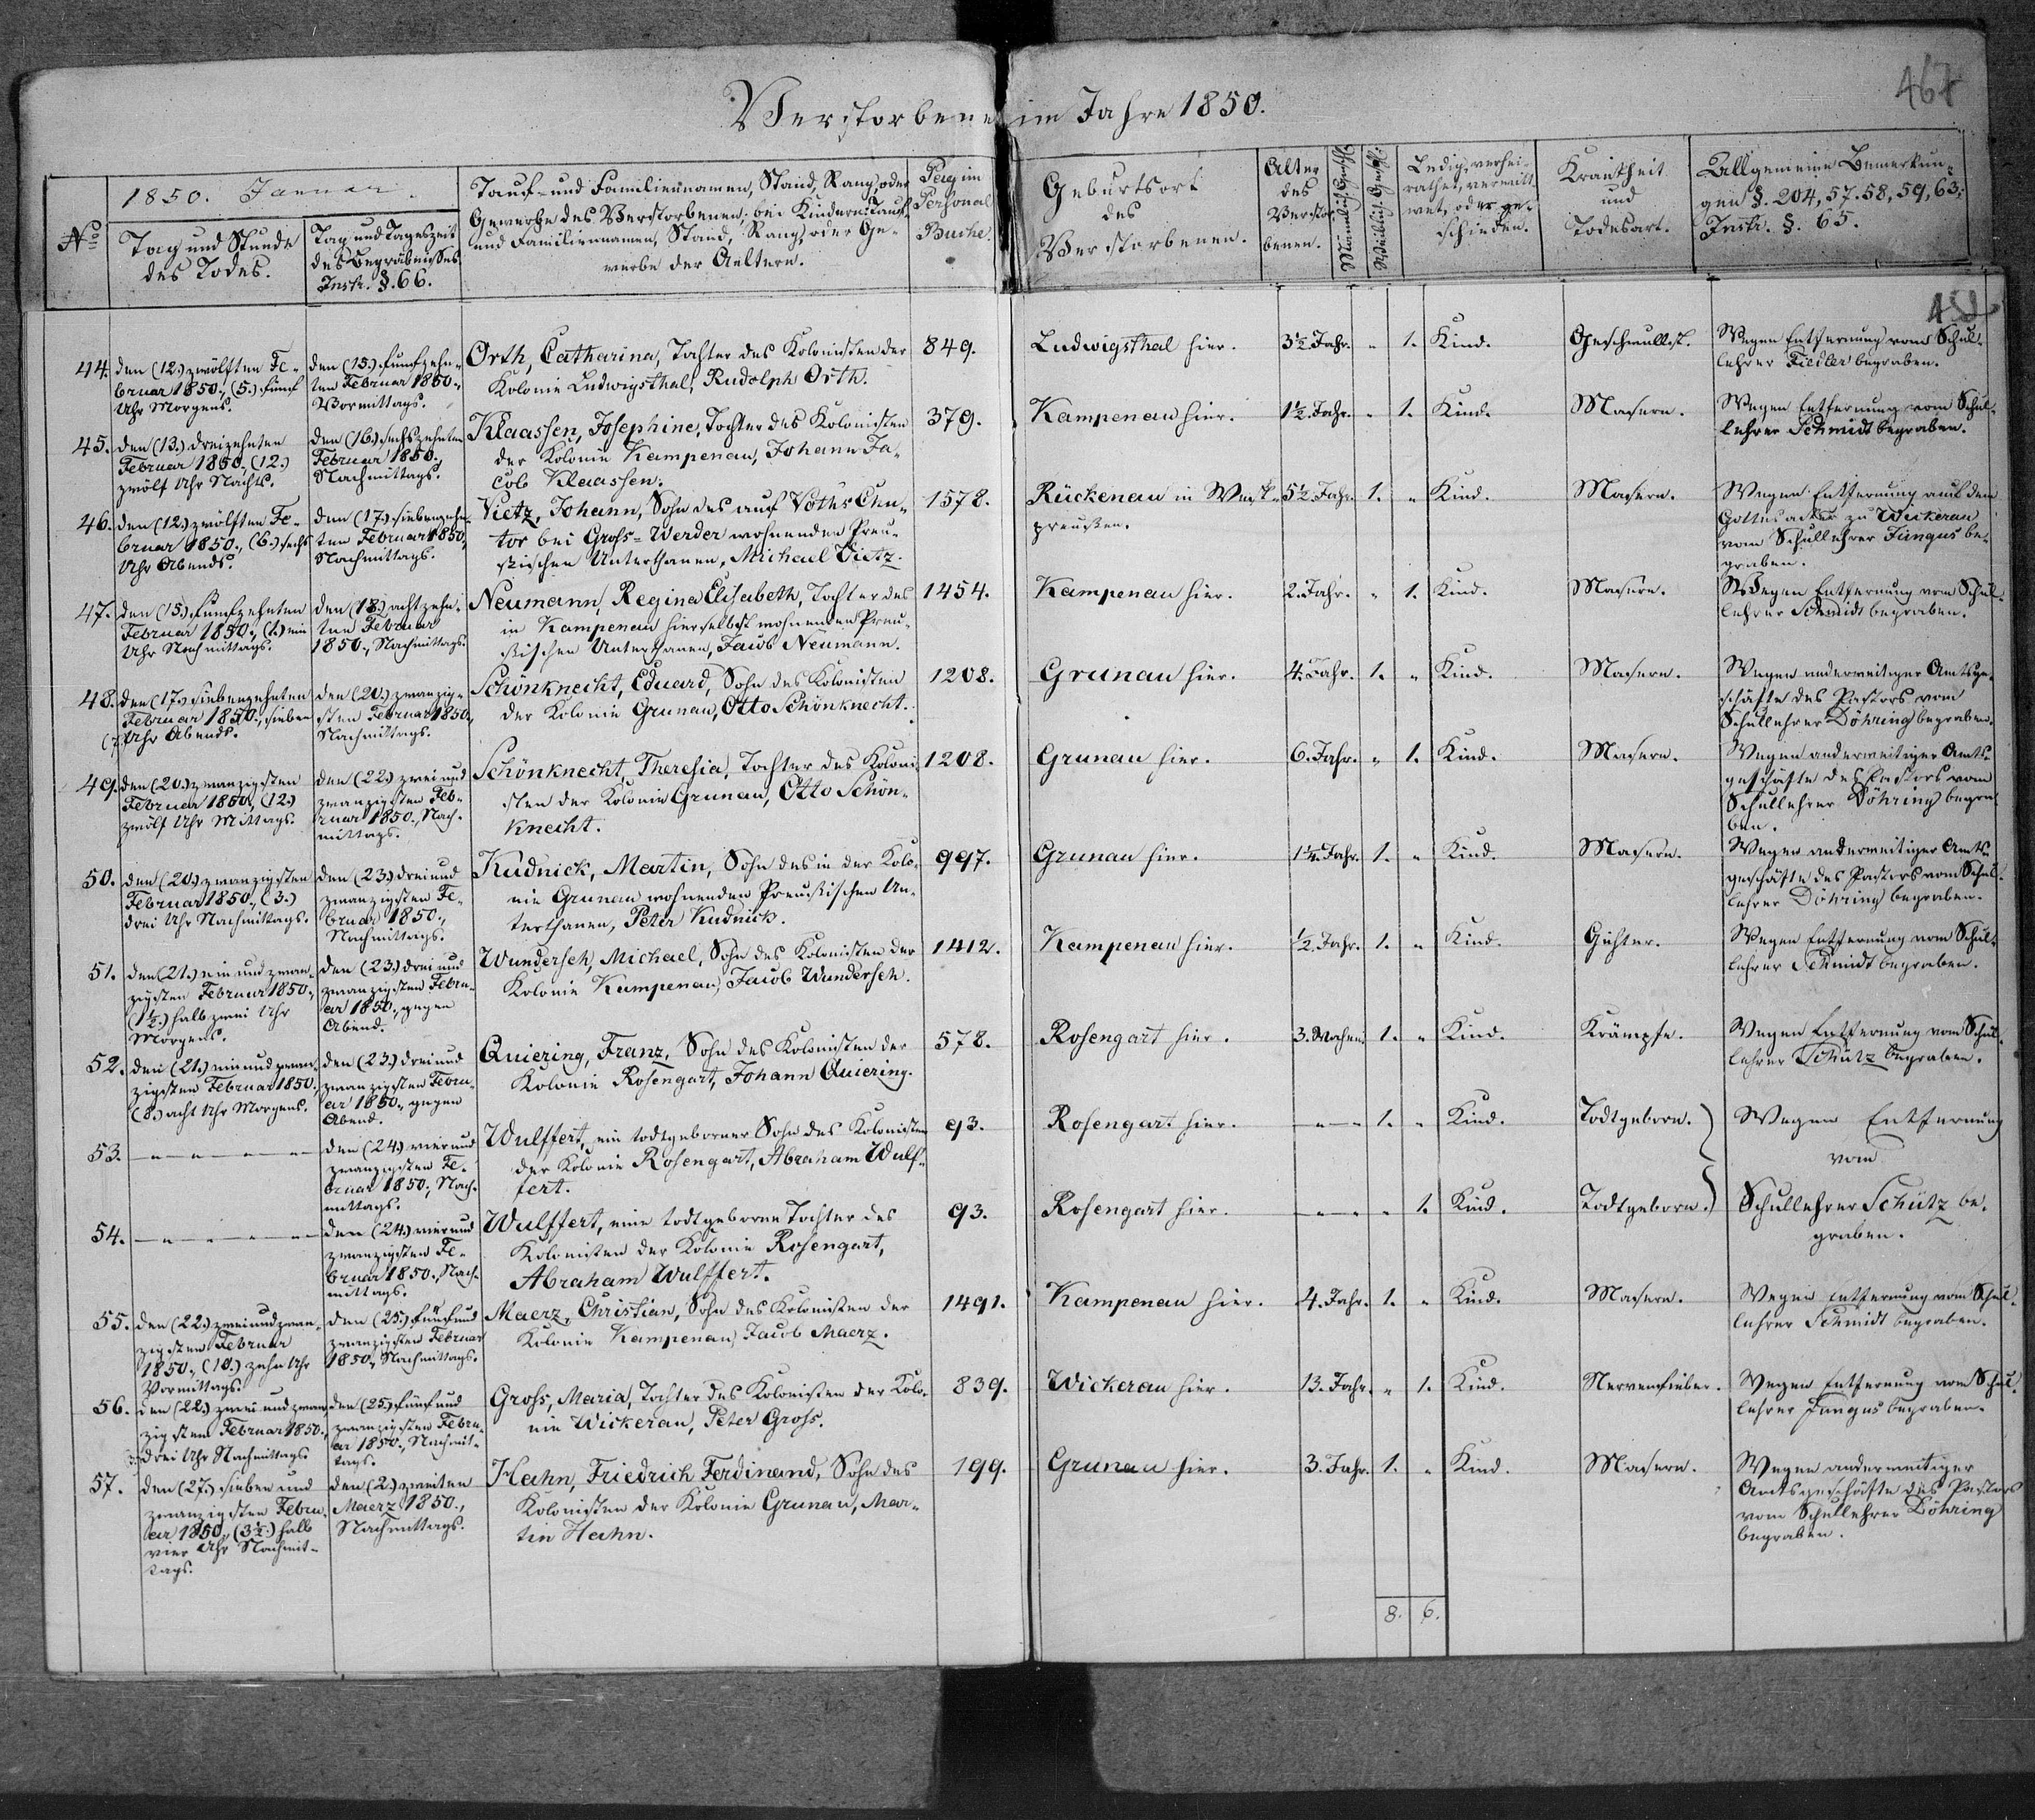 Verstorbene im Jahre 1850.
467
No
1850. Januar.
Tag und Stunde
des Todes.
Tag und Tageszeit
des Begräbnisses
Instr. §. 66.
Tauf- und Familiennamen, Stand, Rang, oder
Gewerbe des Verstorbenen; bei Kindern: Tauf-
und Familiennamen, Stand, Rang, oder Ge-
werbe der Aeltern.
Pag im
Personal
Buche.
Geburtsort
des
Verstorbenen.
Alter
des
Verstor-
benen.
Männlich. Geschl.
Weiblich. Geschl.
Ledig, verhei-
rathet, verwitt-
wet, oder ge-
schieden.
Krankheit
und
Todesart.
Allgemeine Bemerkun-
gen §. 204, 57. 58, 59, 63;
Instr. §. 65.
44. den (12.) zwölften Fe-
bruar 1850., (5.) fünf
Uhr Morgens.
den (15.) fünfzehn-
ten Februar 1850.,
Vormittags.
Orth, Catharina, Tochter des Kolonisten der
Kolonie Ludwigsthal, Rudolph Orth.
849.
Ludwigsthal hier.
3½. Jahr. " 1. Kind.
Geschwulst.
Wegen Entfernung vom Schul-
lehrer Fiedler begraben.
45. den (13.) dreizehnten
Februar 1850., (12.)
zwölf Uhr Nachts.
den (16.) sechszehnten
Februar 1850.,
Nachmittags.
Klaassen, Josephine, Tochter des Kolonisten
der Kolonie Kampenau, Johann Ja-
cob Klaassen.
379.
Kampenau hier.
1½. Jahr. " 1. Kind.
Masern.
Wegen Entfernung vom Schul-
lehrer Schmidt begraben.
46. den (12.) zwölften Fe-
bruar 1850., (6.) sechs
Uhr Abends.
den (17.) siebenzehn-
ten Februar 1850.,
Nachmittags.
Vietz, Johann, Sohn des auf Voths Chu-
tor bei Gross-Werder wohnenden Preu-
ßischen Unterthanen, Michael Vietz.
1578.
Rückenau in West-
preußen.
5½. Jahr. 1. " Kind.
Masern.
Wegen Entfernung auf dem
Gottesacker zu Wickerau
vom Schullehrer Fungus be-
graben.
47. den (15.) fünfzehnten
Februar 1850., (1.) ein
Uhr Nachmittags.
den (18.) achtzehn-
ten Februar
1850., Nachmittags.
Neumann, Regina Elisabeth, Tochter des
in Kampenau hierselbst wohnenden Preu-
ßischen Unterthanen, Jacob Neumann.
1454.
Kampenau hier.
2. Jahr. " 1. Kind.
Masern.
Wegen Entfernung vom Schul-
lehrer Schmidt begraben.
48. den (17.) siebenzehnten
Februar 1850., sieben
(7.) Uhr Abends.
den (20.) zwanzig-
sten Februar 1850.,
Nachmittags.
Schönknecht, Eduard, Sohn des Kolonisten
der Kolonie Grunau, Otto Schönknecht.
1208.
Grunau hier.
4. Jahr. 1. " Kind.
Masern.
Wegen anderweitiger Amtsge-
schäfte des Pastors vom
Schullehrer Döhring begraben.
49. den (20.) zwanzigsten
Februar 1850., (12.)
zwölf Uhr Mittags.
den (22.) zwei und
zwanzigsten Feb-
ruar 1850., Nach-
mittags.
Schönknecht, Theresia, Tochter des Koloni-
sten der Kolonie Grunau, Otto Schön-
knecht.
1208.
Grunau hier.
6. Jahr. " 1. Kind.
Masern.
Wegen anderweitiger Amts-
geschäfte des Pastors vom
Schullehrer Döhring begra-
ben.
50. den (20.) zwanzigsten
Februar 1850., (3.)
drei Uhr Nachmittags.
den (23.) drei und
zwanzigsten Fe-
bruar 1850.,
Nachmittags.
Kudnick, Martin, Sohn des in der Kolo-
nie Grunau wohnenden Preußischen Un-
terthanen, Peter Kudnick.
997.
Grunau hier.
1¼. Jahr. 1. " Kind.
Masern.
Wegen anderweitiger Amts-
geschäfte des Pastors vom Schul-
lehrer Döhring begraben.
51. den (21.) ein und zwan-
zigsten Februar 1850.,
(1½.) halb zwei Uhr
Morgens.
den (23.) drei und
zwanzigsten Febru-
ar 1850., gegen
Abend.
Wunderseh, Michael, Sohn des Kolonisten der
Kolonie Kampenau, Jacob Wunderseh.
1412.
Kampenau hier.
½. Jahr. 1. " Kind.
Wegen Entfernung vom Schul-
lehrer Schmidt begraben.
52. den (21.) ein und zwan-
zigsten Februar 1850.,
(8.) acht Uhr Morgens.
den (23.) drei und
zwanzigsten Febru-
ar 1850., gegen
Abend.
Quiering, Franz, Sohn des Kolonisten der
Kolonie Rosengart, Johann Quiering.
578.
Rosengart hier.
3. Wochen 1. " Kind.
Krämpfe.
Wegen Entfernung vom Schul-
lehrer Schütz begraben.
53. — " — " — " — " —
den (24.) vier und
zwanzigsten Fe-
bruar 1850., Nach-
mittags.
Wulffert, ein todtgeborner Sohn des Kolonisten
der Kolonie Rosengart, Abraham Wulf-
fert.
93.
Rosengart hier.
— " — 1. " Kind.
Todtgeborn.
Wegen Entfernung
vom
54. — " — " — " — " —
den (24.) vier und
zwanzigsten Fe-
bruar 1850., Nach-
mittags.
Wulffert, eine todtgeborne Tochter des
Kolonisten der Kolonie Rosengart,
Abraham Wulffert.
93.
Rosengart hier.
— " — " 1. Kind.
Todtgeborn.
Schullehrer Schütz be-
graben.
55. den (22.) zwei und zwan-
zigsten Februar
1850., (10.) zehn Uhr
Vormittags.
den (25.) fünf und
zwanzigsten Februar
1850., Nachmittags.
Maerz, Christian, Sohn des Kolonisten der
Kolonie Kampenau, Jacob Maerz.
1491.
Kampenau hier.
4. Jahr. 1. " Kind.
Masern.
Wegen Entfernung vom Schul-
lehrer Schmidt begraben.
56. den (22.) zwei und zwan-
zigsten Februar 1850.,
(3.) drei Uhr Nachmittags
den (25.) fünf und
zwanzigsten Febru-
ar 1850., Nachmit-
tags.
Gross, Maria, Tochter des Kolonisten der Kolo-
nie Wickerau, Peter Gross.
839.
Wickerau hier.
13. Jahr. " 1. Kind.
Nervenfieber.
Wegen Entfernung vom Schul-
lehrer Fungus begraben.
57. den (27.) sieben und
zwanzigsten Febru-
ar 1850., (3½.) halb
vier Uhr Nachmit-
tags.
den (2.) zweiten
Maerz 1850.,
Nachmittags.
Hahn, Friedrich Ferdinand, Sohn des
Kolonisten der Kolonie Grunau, Mar-
tin Hahn.
199.
Grunau hier.
3. Jahr. 1. " Kind.
Masern.
Wegen anderweitiger
Amtsgeschäfte des Pastors
vom Schullehrer Döhring
begraben.
8. 6.